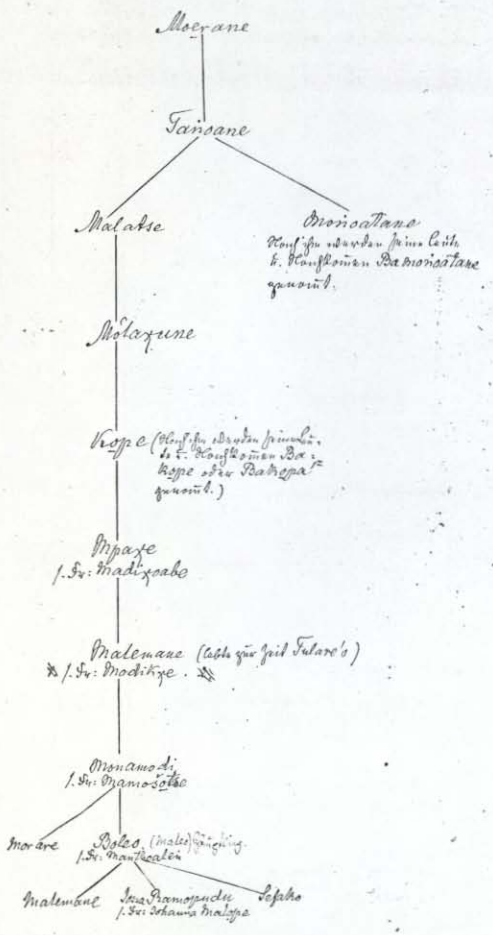 Moerane
Tañoane
Malatse
Moñoatane
Nach ihm werden seine Leute
u. Nachkomen Bamoñoatane
genannt.
Motaxune
Kope (Nach ihm werden seine Leu-
te u. Nachkomen Ba-
kope oder Bakopa
genannt.)
Mpaxe
s. Fr: Madixoabe
Malemane (lebte zur Zeit Tulare's)
s. Fr: Modikxe.
Monamodi
s. Fr: Mamošotse
Morare
Boleo. (Maleo) Häuptling.
s. Fr: Manthoalen
Malemane
Ramopudu
s. Fr: Johanna Matope
Sefako